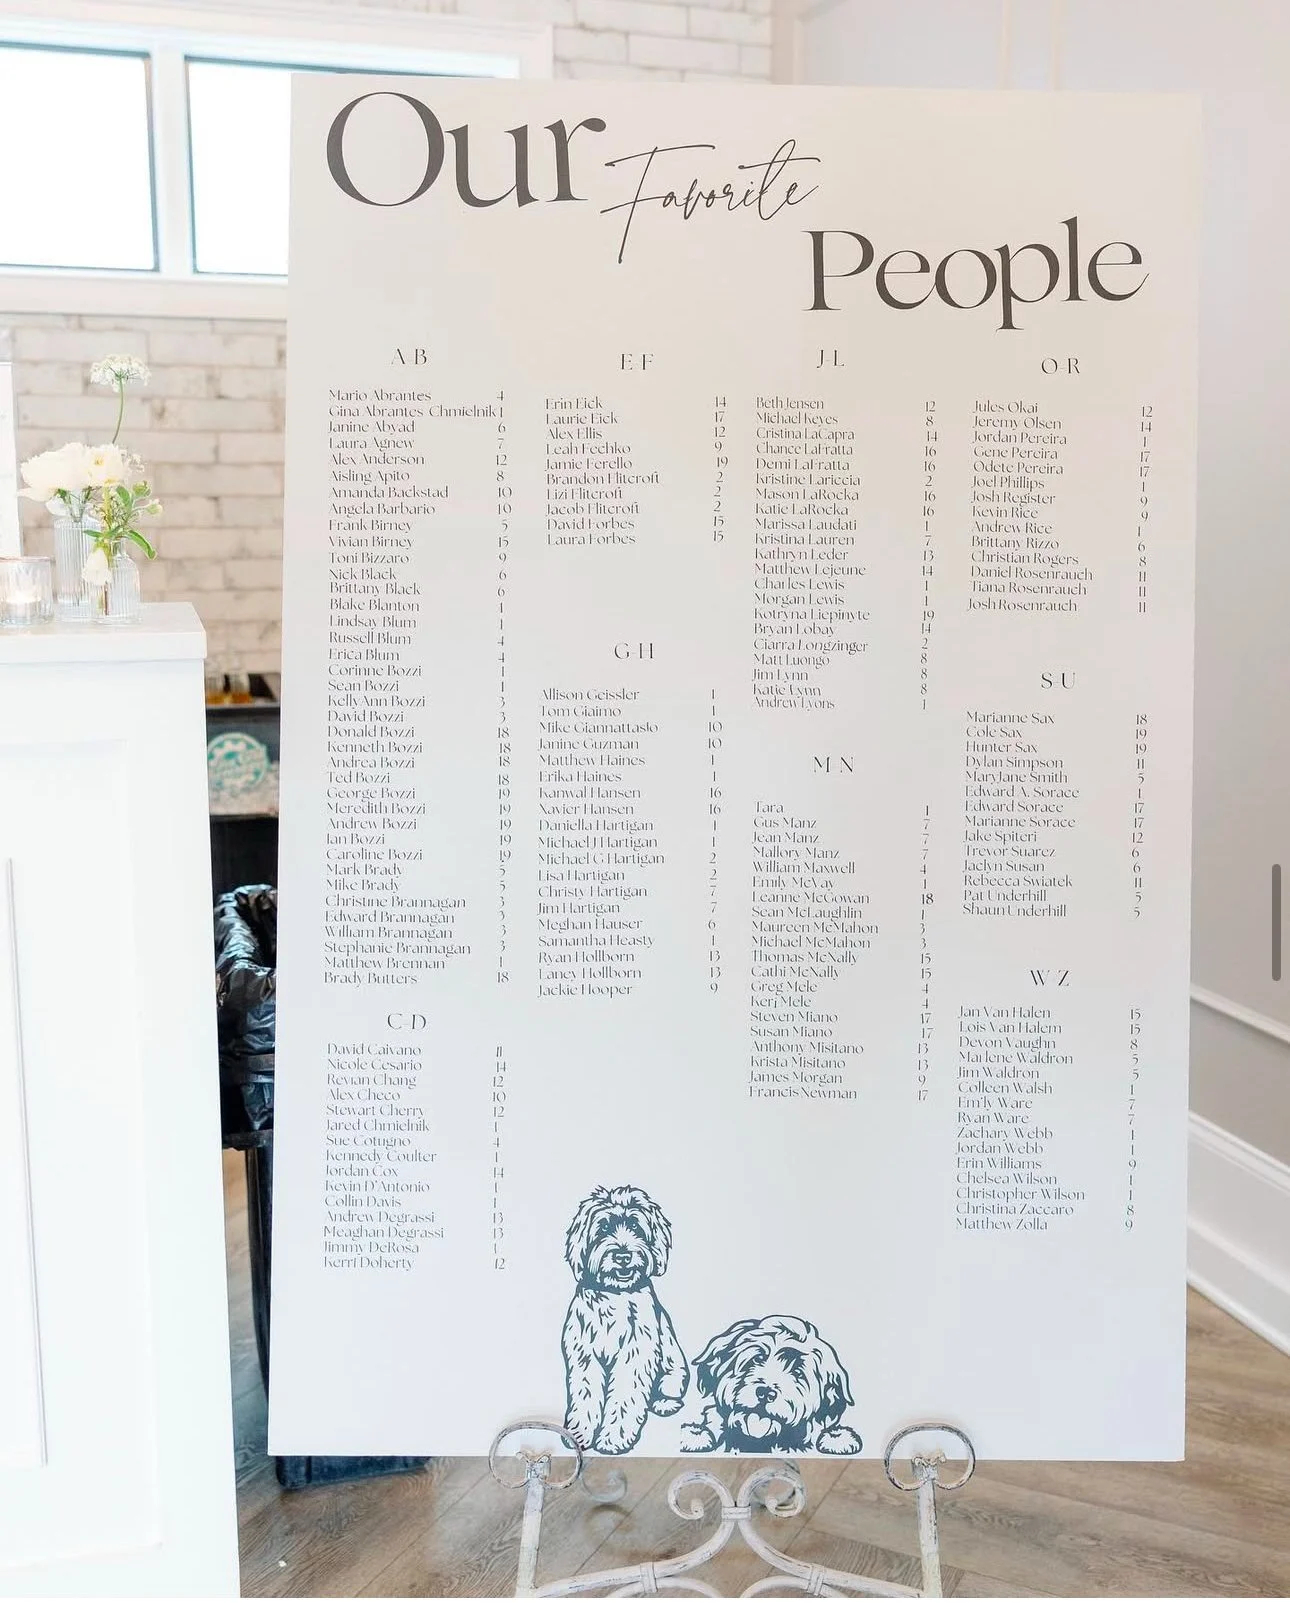 Our
Favorite
People
A-B
Mario Abrantes 4
Gina Abrantes-Chmielnik 1
Janine Abyad 6
Laura Agnew 7
Alex Anderson 12
Aisling Apito 8
Amanda Backstad 10
Angela Barbario 10
Frank Birney 5
Vivian Birney 15
Toni Bizzaro 9
Nick Black 6
Brittany Black 6
Blake Blanton 1
Lindsay Blum 1
Russell Blum 4
Erica Blum 4
Corinne Bozzi 1
Sean Bozzi 1
KellyAnn Bozzi 3
David Bozzi 3
Donald Bozzi 18
Kenneth Bozzi 18
Andrea Bozzi 18
Ted Bozzi 18
George Bozzi 19
Meredith Bozzi 19
Andrew Bozzi 19
Ian Bozzi 19
Caroline Bozzi 19
Mark Brady 5
Mike Brady 5
Christine Brannagan 3
Edward Brannagan 3
William Brannagan 3
Stephanie Brannagan 3
Matthew Brennan 1
Brady Butters 18
C-D
David Caivano 11
Nicole Cesario 14
Revian Chang 12
Alex Checo 10
Stewart Cherry 12
Jared Chmielnik 1
Sue Cotugno 4
Kennedy Coulter 1
Jordan Cox 14
Kevin D'Antonio 1
Collin Davis 1
Andrew Degrassi 13
Meaghan Degrassi 13
Jimmy DeRosa 1
Kerri Doherty 12
E-F
Erin Eick 14
Laurie Eick 17
Alex Ellis 12
Leah Fechko 9
Jamie Ferello 19
Brandon Flitcroft 2
Lizi Flitcroft 2
Jacob Flitcroft 2
David Forbes 15
Laura Forbes 15
G-H
Allison Geissler 1
Tom Giaimo 1
Mike Giannattasio 10
Janine Guzman 10
Matthew Haines 1
Erika Haines 1
Kanwal Hansen 16
Xavier Hansen 16
Daniella Hartigan 1
Michael J Hartigan 1
Michael G Hartigan 2
Lisa Hartigan 2
Christy Hartigan 7
Jim Hartigan 7
Meghan Hauser 6
Samantha Heasty 1
Ryan Hollborn 13
Laney Hollborn 13
Jackie Hooper 9
J-L
Beth Jensen 12
Michael Keyes 8
Cristina LaCapra 14
Chance LaFratta 16
Demi LaFratta 16
Kristine Lariccia 2
Mason LaRocka 16
Katie LaRocka 16
Marissa Laudati 1
Kristina Lauren 7
Kathryn Leder 13
Matthew Lejeune 14
Charles Lewis 1
Morgan Lewis 1
Kotryna Liepinyte 19
Bryan Lobay 14
Ciarra Longzinger 2
Matt Luongo 8
Jim Lynn 8
Katie Lynn 8
Andrew Lyons 1
M-N
Tara 1
Gus Manz 7
Jean Manz 7
Mallory Manz 7
William Maxwell 4
Emily McVay 1
Leanne McGowan 18
Sean McLaughlin 1
Maureen McMahon 3
Michael McMahon 3
Thomas McNally 15
Cathi McNally 15
Greg Mele 4
Keri Mele 4
Steven Miano 17
Susan Miano 17
Anthony Misitano 13
Krista Misitano 13
James Morgan 9
Francis Newman 17
O-R
Jules Okai 12
Jeremy Olsen 14
Jordan Pereira 1
Gene Pereira 17
Odete Pereira 17
Joel Phillips 1
Josh Register 9
Kevin Rice 9
Andrew Rice 1
Brittany Rizzo 6
Christian Rogers 8
Daniel Rosenrauch 11
Tiana Rosenrauch 11
Josh Rosenrauch 11
S-U
Marianne Sax 18
Cole Sax 19
Hunter Sax 19
Dylan Simpson 11
MaryJane Smith 5
Edward A. Sorace 1
Edward Sorace 17
Marianne Sorace 17
Jake Spiteri 12
Trevor Suarez 6
Jaclyn Susan 6
Rebecca Swiatek 11
Pat Underhill 5
Shaun Underhill 5
W-Z
Jan Van Halen 15
Lois Van Halem 15
Devon Vaughn 8
Marlene Waldron 5
Jim Waldron 5
Colleen Walsh 1
Emily Ware 7
Ryan Ware 7
Zachary Webb 1
Jordan Webb 1
Erin Williams 9
Chelsea Wilson 1
Christopher Wilson 1
Christina Zaccaro 8
Matthew Zolla 9